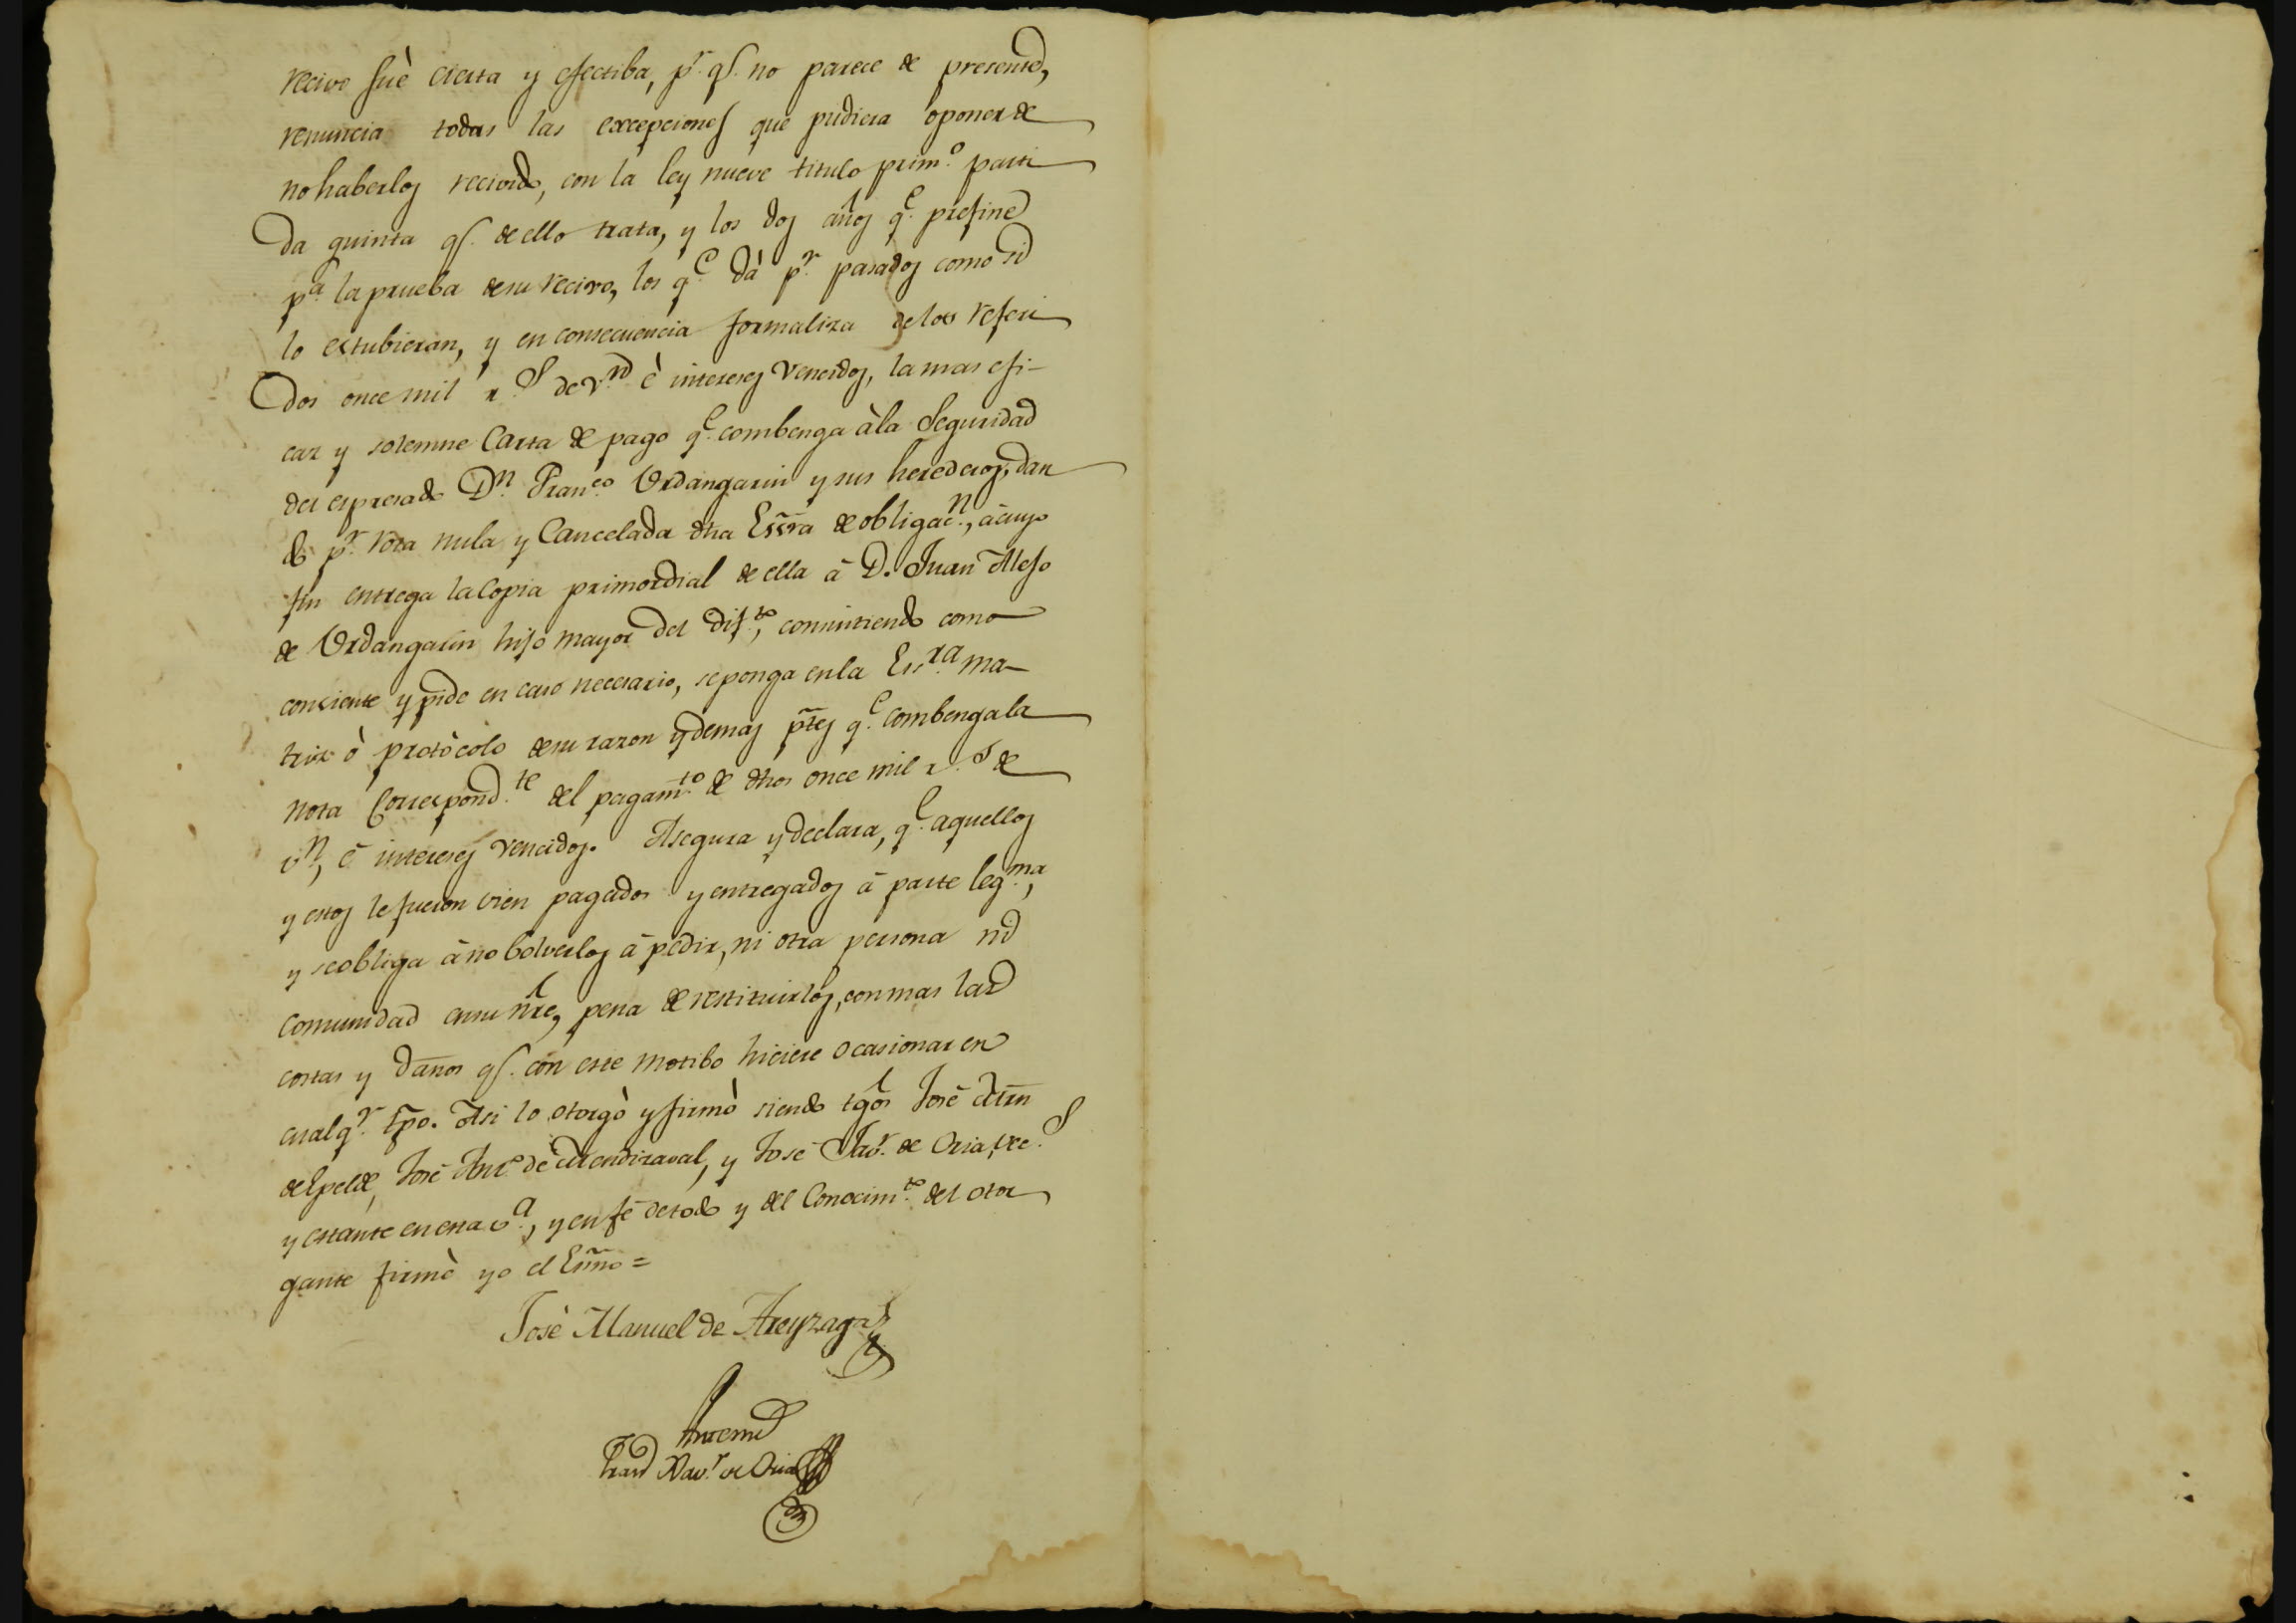 recivo fuè cierta y efectiba, p.r q.e no parece de presente,
renuncia todas las excepciones que pudiera oponer de
no haberlos recivido, con la ley nueve titulo prim.o parti
da quinta q.e de ello trata, y los dos años q.e prefine
p.a la prueba de su recivo, los q.e dà p.r pasados como si
lo estubieran, y en consecuencia formaliza de los referi
dos once mil r.s de v.n è intereses vencidos, la mas efi-
caz y solemne Carta de pago q.e combenga à la Seguridad
del espresado D.n Fran.co Urdangarin y sus herederos, dan
do p.r rota nula y Cancelada dha Essra de obligac.n, à cuyo
fin entrega la Copia primordial de ella à D. Juan Alejo
de Urdangarin hijo mayor del dif.to, consintiendo como
consiente y pide en caso necesario, se ponga en la Ess.ra ma-
triz ò protòcolo de su razon y demas ptes q.e combenga la
nota Correspond.te del pagam.to de dhos once mil r.s de
v.n, è intereses vencidos. Asegura y declara, q.e aquellos
y estos le fueron vien pagados y entregados à parte leg.ma,
y se obliga à no bolverlos à pedir, ni otra persona ni
comunidad en su nre, pena de restituirlos, con mas las
costas y daños q.e con este motibo hiciere ocasionar en
cualq.r tpo. Asi lo otorgò y firmò siendo tgos José
de Epelde, José Ant.o de Mendizaval, y José Jav.r de Oria, vec.s
y estante en esta v.a, y en fe de todo y del Conocim.to del otor
gante firmè yo el Essno =
Josè Manuel de Areyzaga
Ante mi
Xav.r de Oria